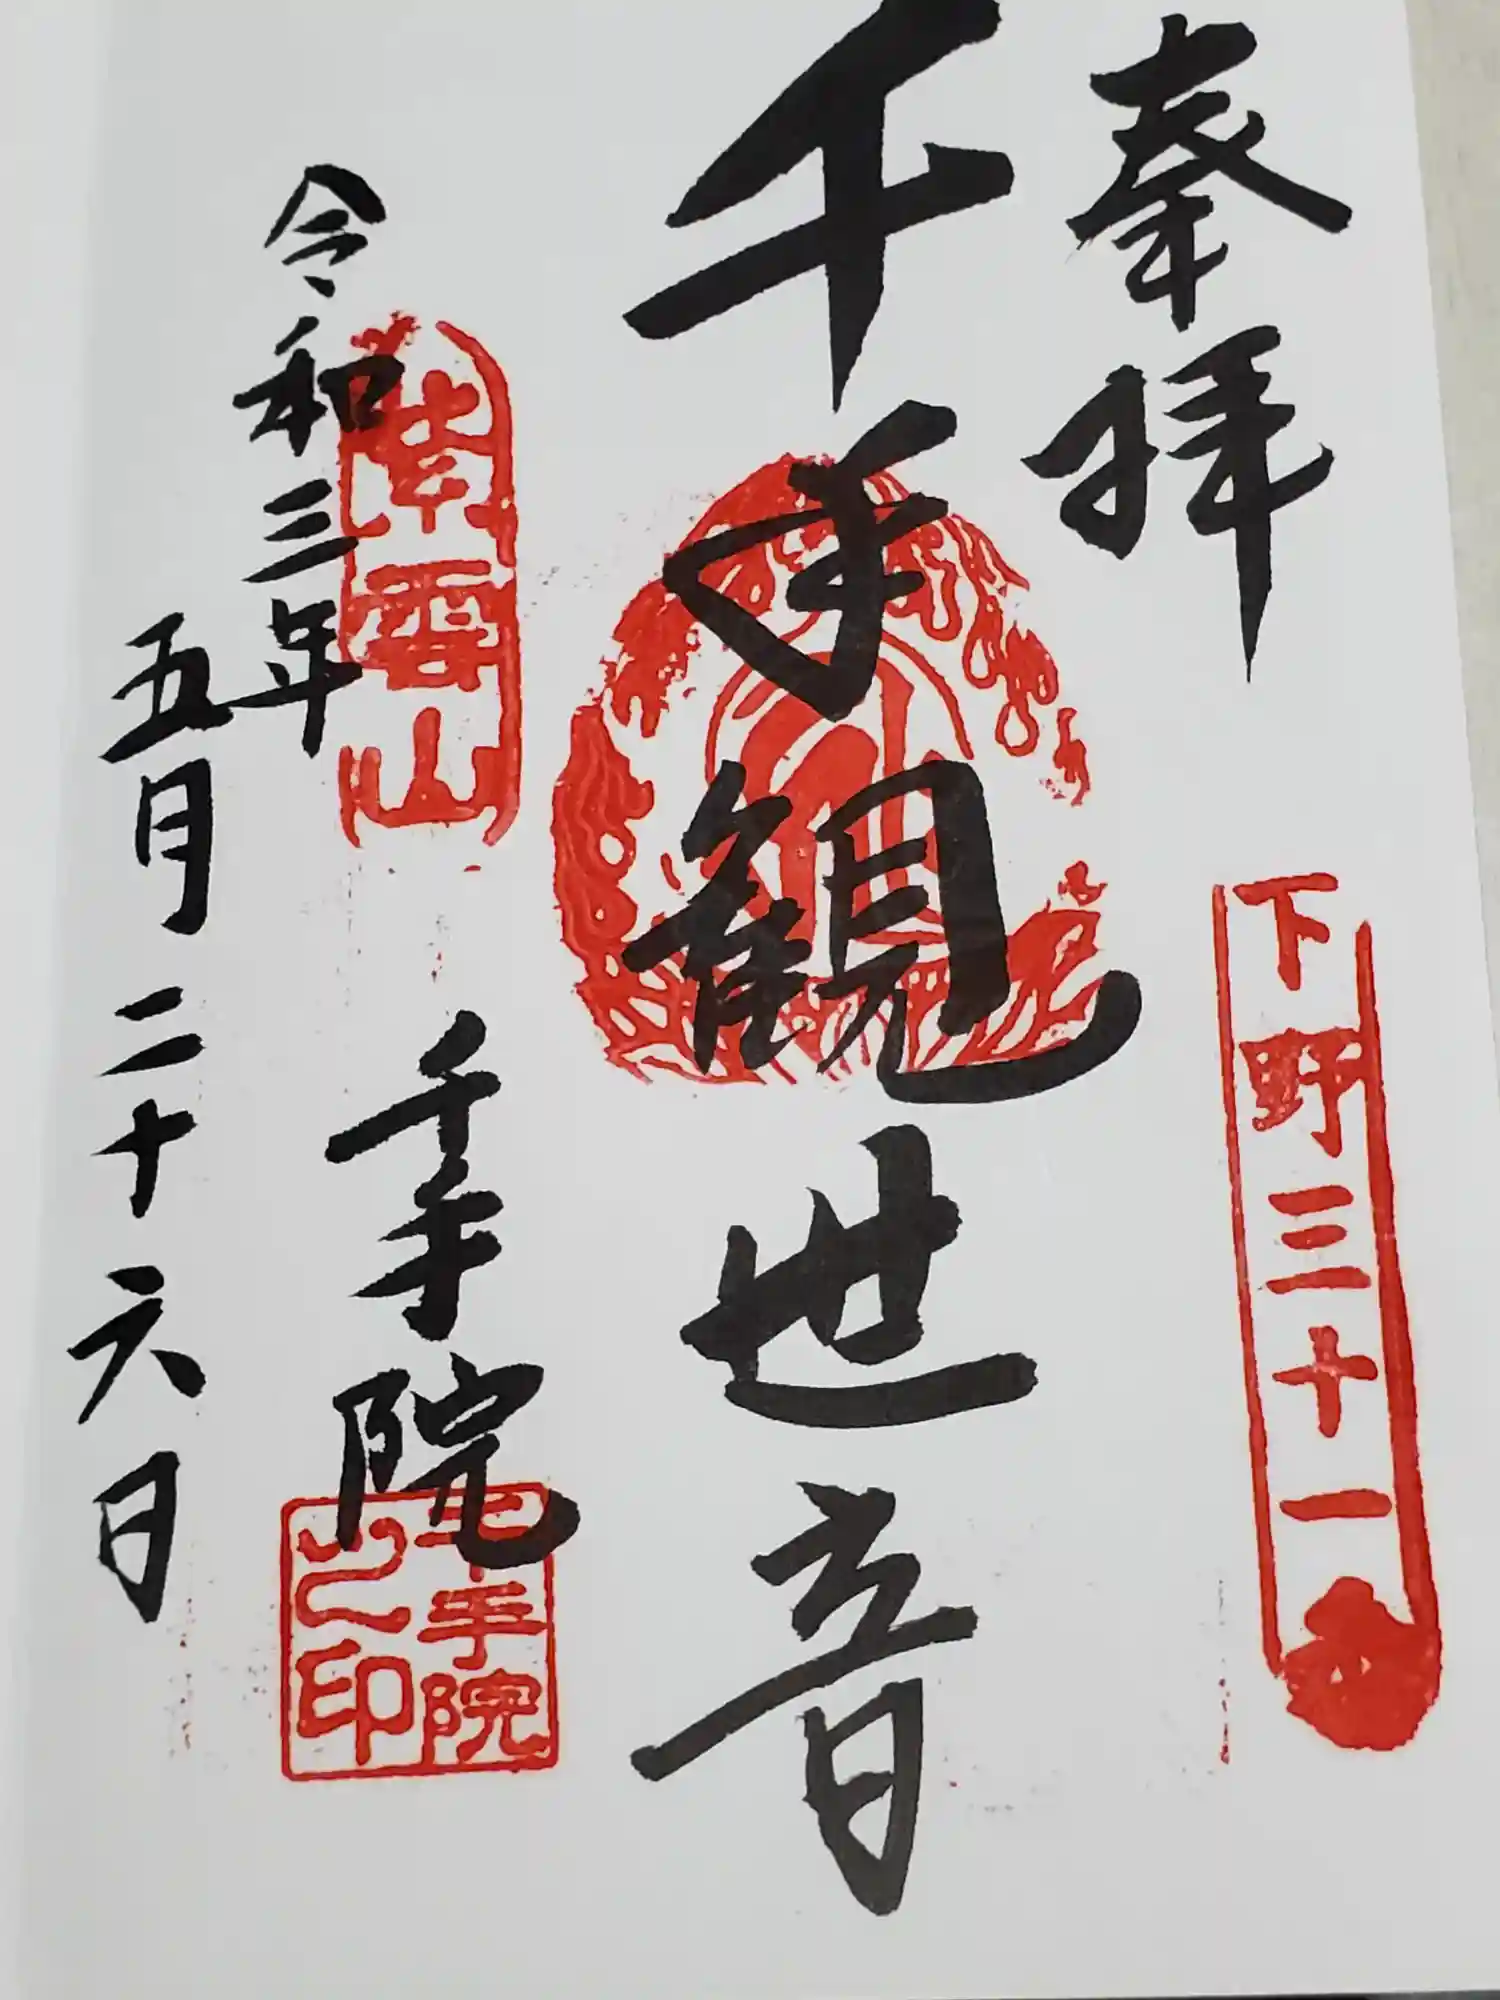 奉拝
下野三十一番
千手観世音
紫雲山
千手院
千手院
之印
令和三年
五月二十六日